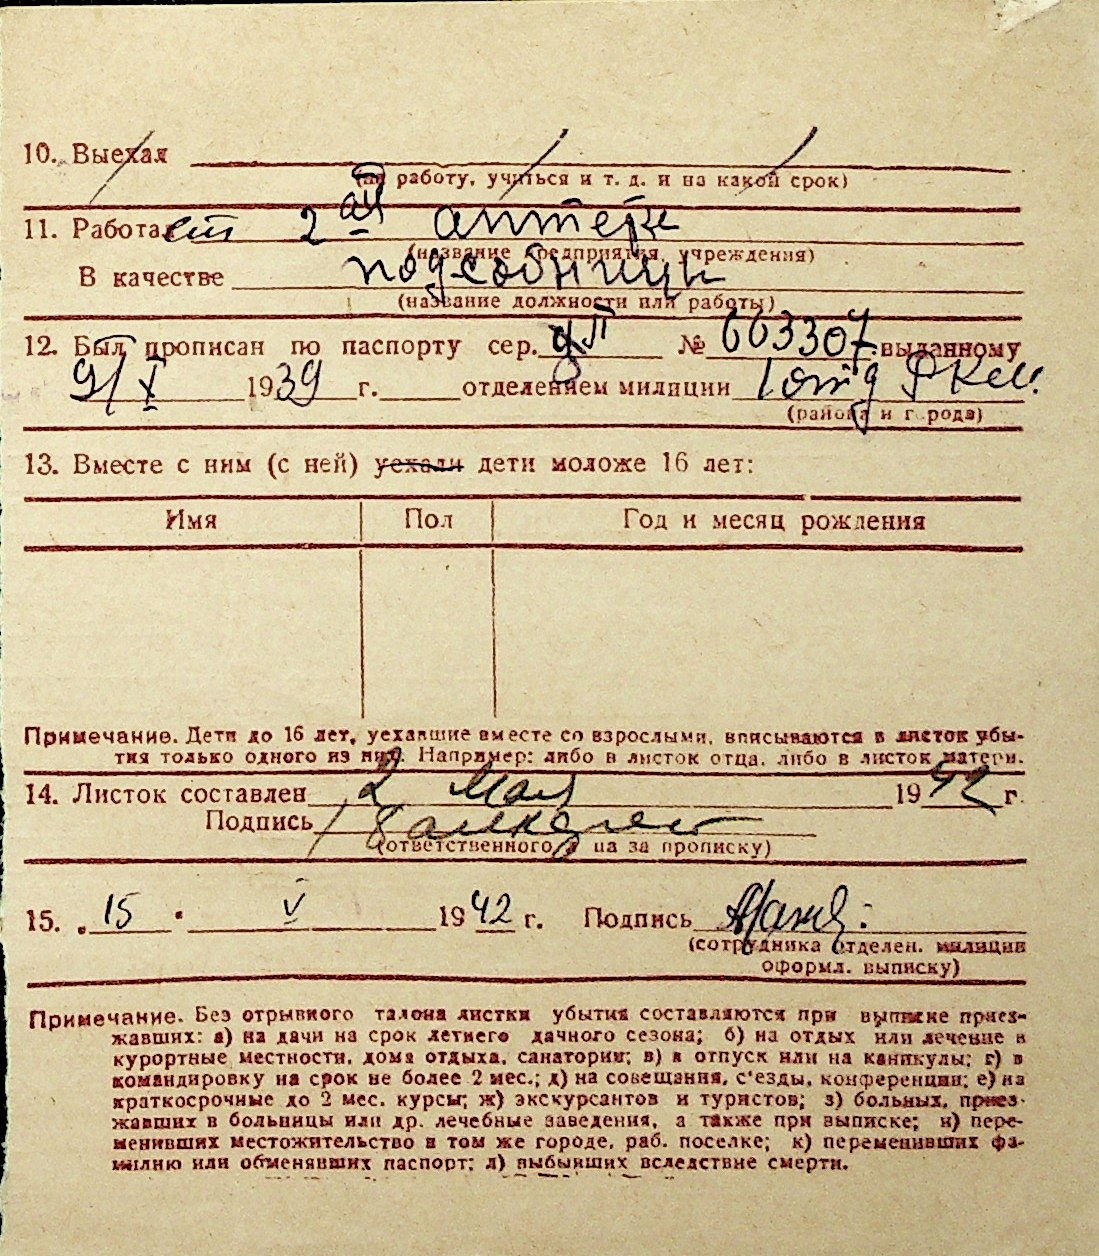 10. Выехал
(на работу, учиться и т. д. и на какой срок)
11. Работает 2ой аптеке
(название предприятия, учреждения)
В качестве подсобницы
(название должности или работы)
12. Был прописан по паспорту сер. № 663307 выданному
9/X 1939 г. отделением милиции 10 отд РКМ.
(района и города)
13. Вместе с ним (с ней) уехали дети моложе 16 лет:
Имя Пол Год и месяц рождения
Примечание. Дети до 16 лет, уехавшие вместе со взрослыми, вписываются в листок убы-
тия только одного из них. Например: либо в листок отца, либо в листок матери.
14. Листок составлен 2 Мая 1942 г.
Подпись
(ответственного лица за прописку)
15. „15" V 1942 г. Подпись
(сотрудника отделен. милиции
оформл. выписку)
Примечание. Без отрывного талона листки убытия составляются при выписке приез-
жавших: а) на дачи на срок летнего дачного сезона; б) на отдых или лечение в
курортные местности, дома отдыха, санатории; в) в отпуск или на каникулы; г) в
командировку на срок не более 2 мес.; д) на совещания, с'езды, конференции; е) на
краткосрочные до 2 мес. курсы; ж) экскурсантов и туристов; з) больных, приез-
жавших в больницы или др. лечебные заведения, а также при выписке; и) пере-
менивших местожительство в том же городе, раб. поселке; к) переменивших фа-
милию или обменявших паспорт; л) выбывших вследствие смерти.